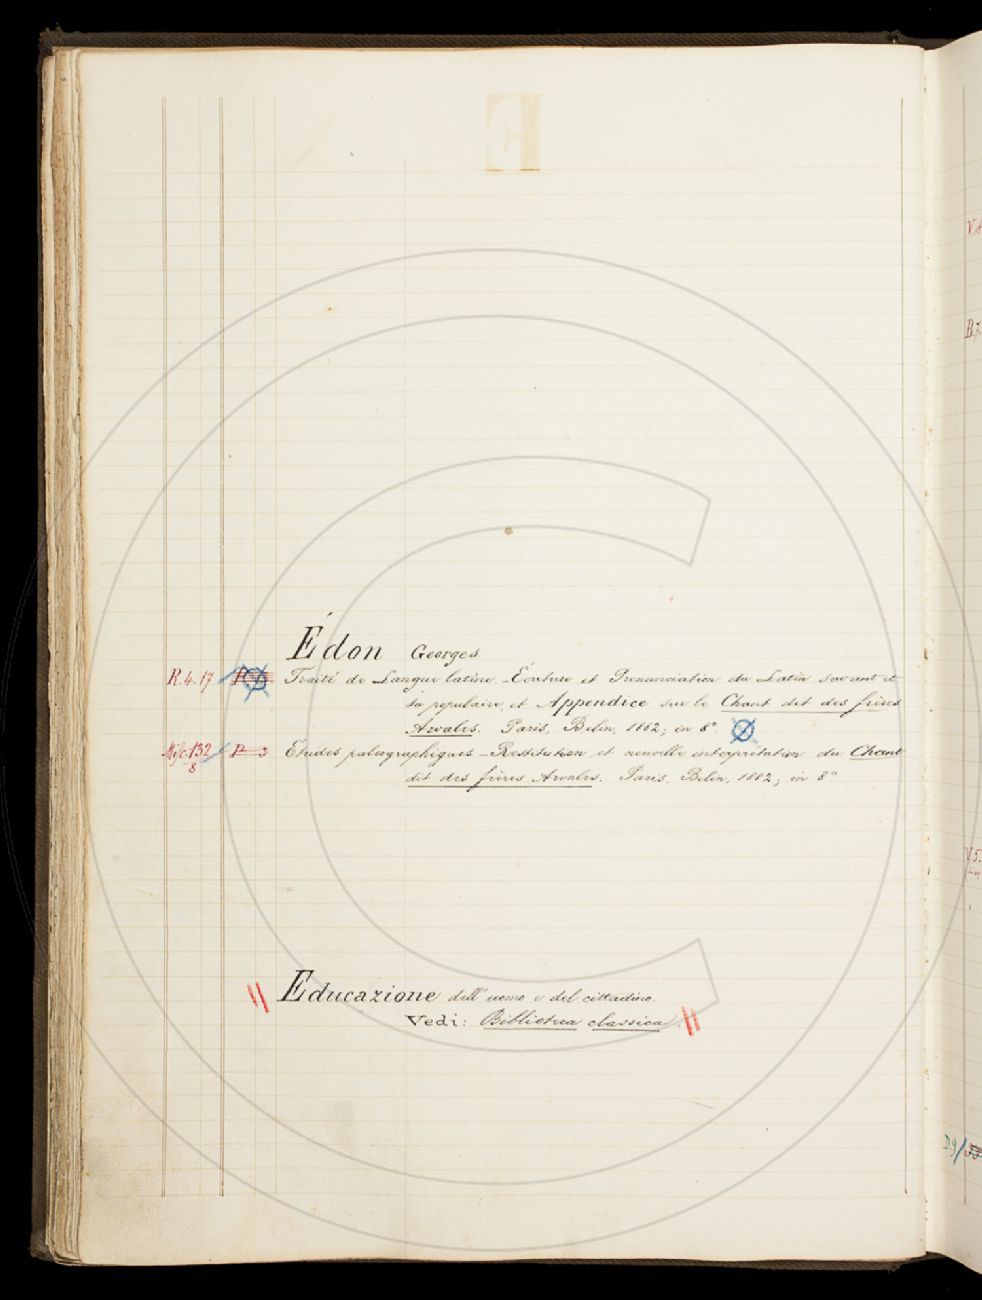 E
Édon Georges
R.4.17 Traité de Langue latine - Écriture et Prononciation du Latin savant et
du populaire, et Appendice sur le Chant dit des frères
Arvales. Paris, Belin, 1882; in 8°.
Misc. 132 Études paléographiques - Restitution et nouvelle interprétation du Chant
8 dit des frères Arvales. Paris, Belin, 1882; in 8°
Educazione dell' uomo e del cittadino.
Vedi: Biblioteca classica.